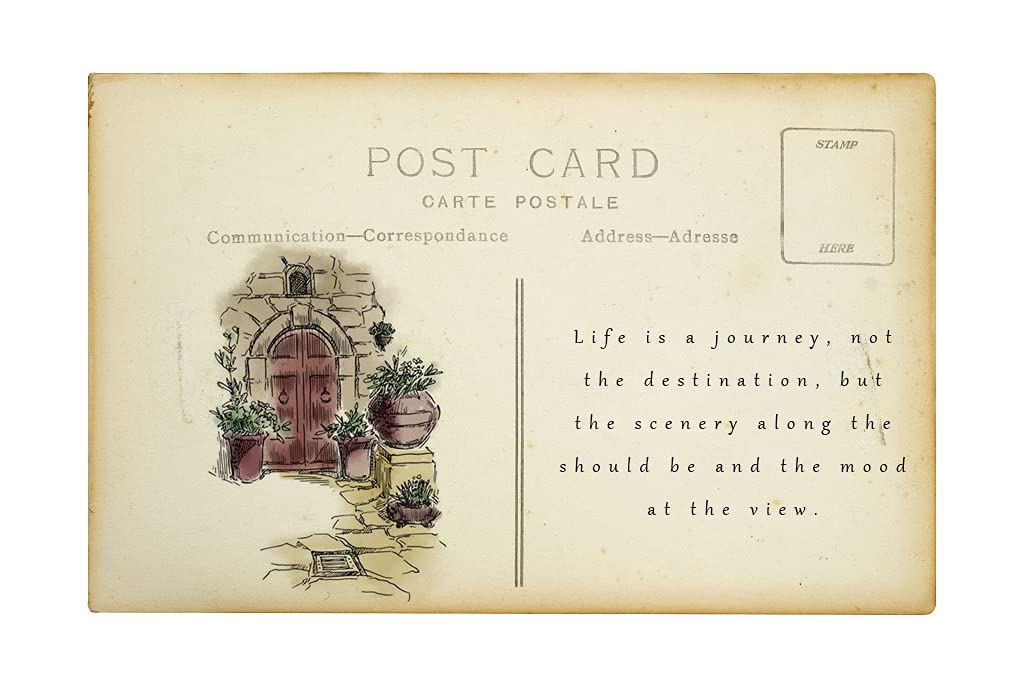 POST CARD
CARTE POSTALE
STAMP
HERE
Communication—Correspondance
Address—Adresse
Life is a journey, not
the destination, but
the scenery along the
should be and the mood
at the view.